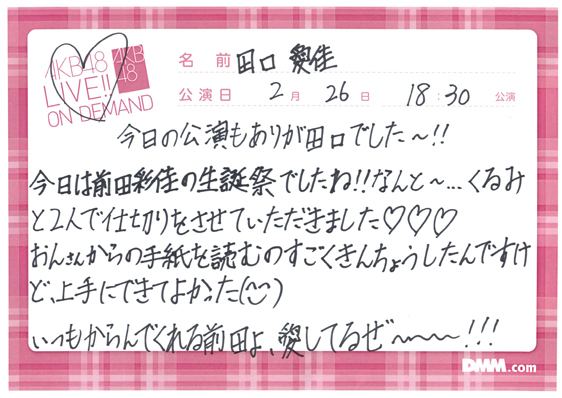 AKB48
LIVE!!
ON DEMAND
AKB
48
名前 田口 愛佳
公演日 2月 26日 18:30 公演
今日の公演もありが田口でした〜!!
今日は前田彩佳の生誕祭でしたね!!なんと〜...くるみ
と2人で仕切りをさせていただきました♡♡♡
おんさんからの手紙を読むのすごくきんちょうしたんですけ
ど、上手にできてよかった(¨)
いつもからんでくれる前田よ、愛してるぜ〜〜〜!!!
DMM.com